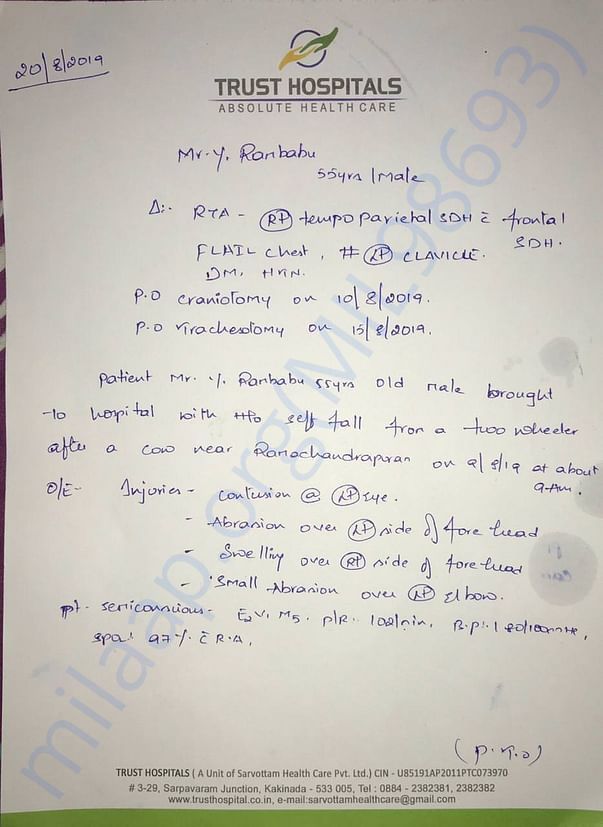 20/8/2019
TRUST HOSPITALS
ABSOLUTE HEALTH CARE
Mr. Y. Rambabu
55yrs / Male
Δ:- RTA - (RT) tempo parietal SDH c̄ frontal
SDH.
FLAIL chest, # (LT) CLAVICLE.
DM, HTN.
P.O craniotomy on 10/8/2019.
P.O Tracheostomy on 15/8/2019.
patient Mr. Y. Rambabu 55yrs old male brought
to hospital with H/o self fall from a two wheeler
after a cow near Ramachandrapuram on 9/8/19 at about
9-Am.
O/E- Injuries - contusion @ (LT) eye.
- Abrasion over (LT) side of fore head
- Swelling over (RT) side of fore head
- Small Abrasion over (LT) Elbow.
pt- semiconscious - E2 V1 M5. P/R- 102/min, B.P:
SPO2: 97% c̄ R.A,
(P.T.O)
TRUST HOSPITALS ( A Unit of Sarvottam Health Care Pvt. Ltd.) CIN - U85191AP2011PTC073970
# 3-29, Sarpavaram Junction, Kakinada - 533 005, Tel : 0884 - 2382381, 2382382
www.trusthospital.co.in, e-mail:sarvottamhealthcare@gmail.com
milaap.org(MIL98693)